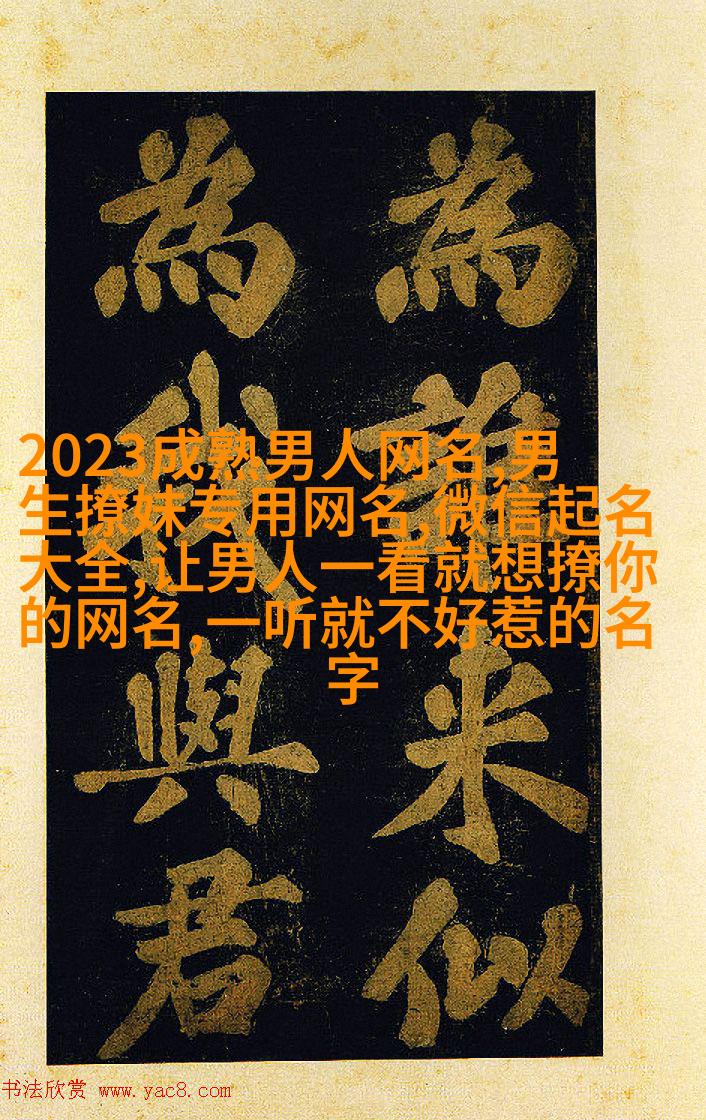 為誰来似
為我與君
2023成熟男人网名,男
生撩妹专用网名,微信起名
大全,让男人一看就想撩你
的网名,一听就不好惹的名
字
书法欣赏 www.yac8.com